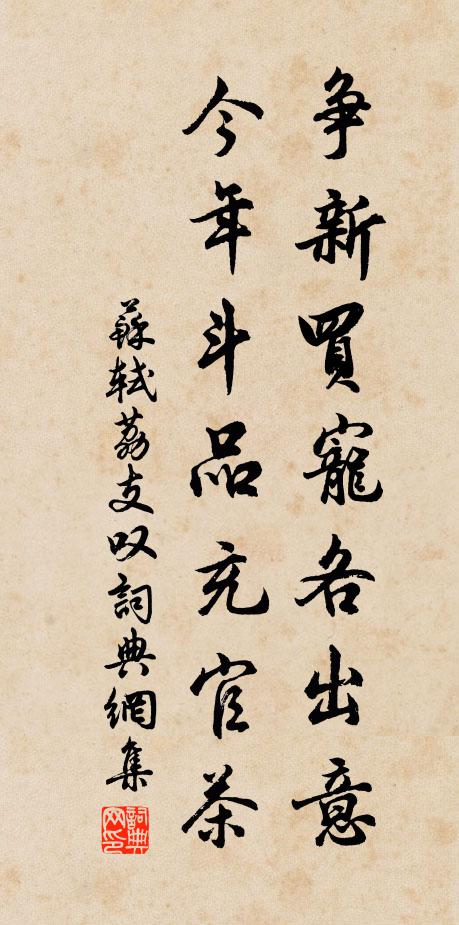 争新買寵各出意
今年斗品充官茶
蘇軾荔支叹詞典網集
詞典网印